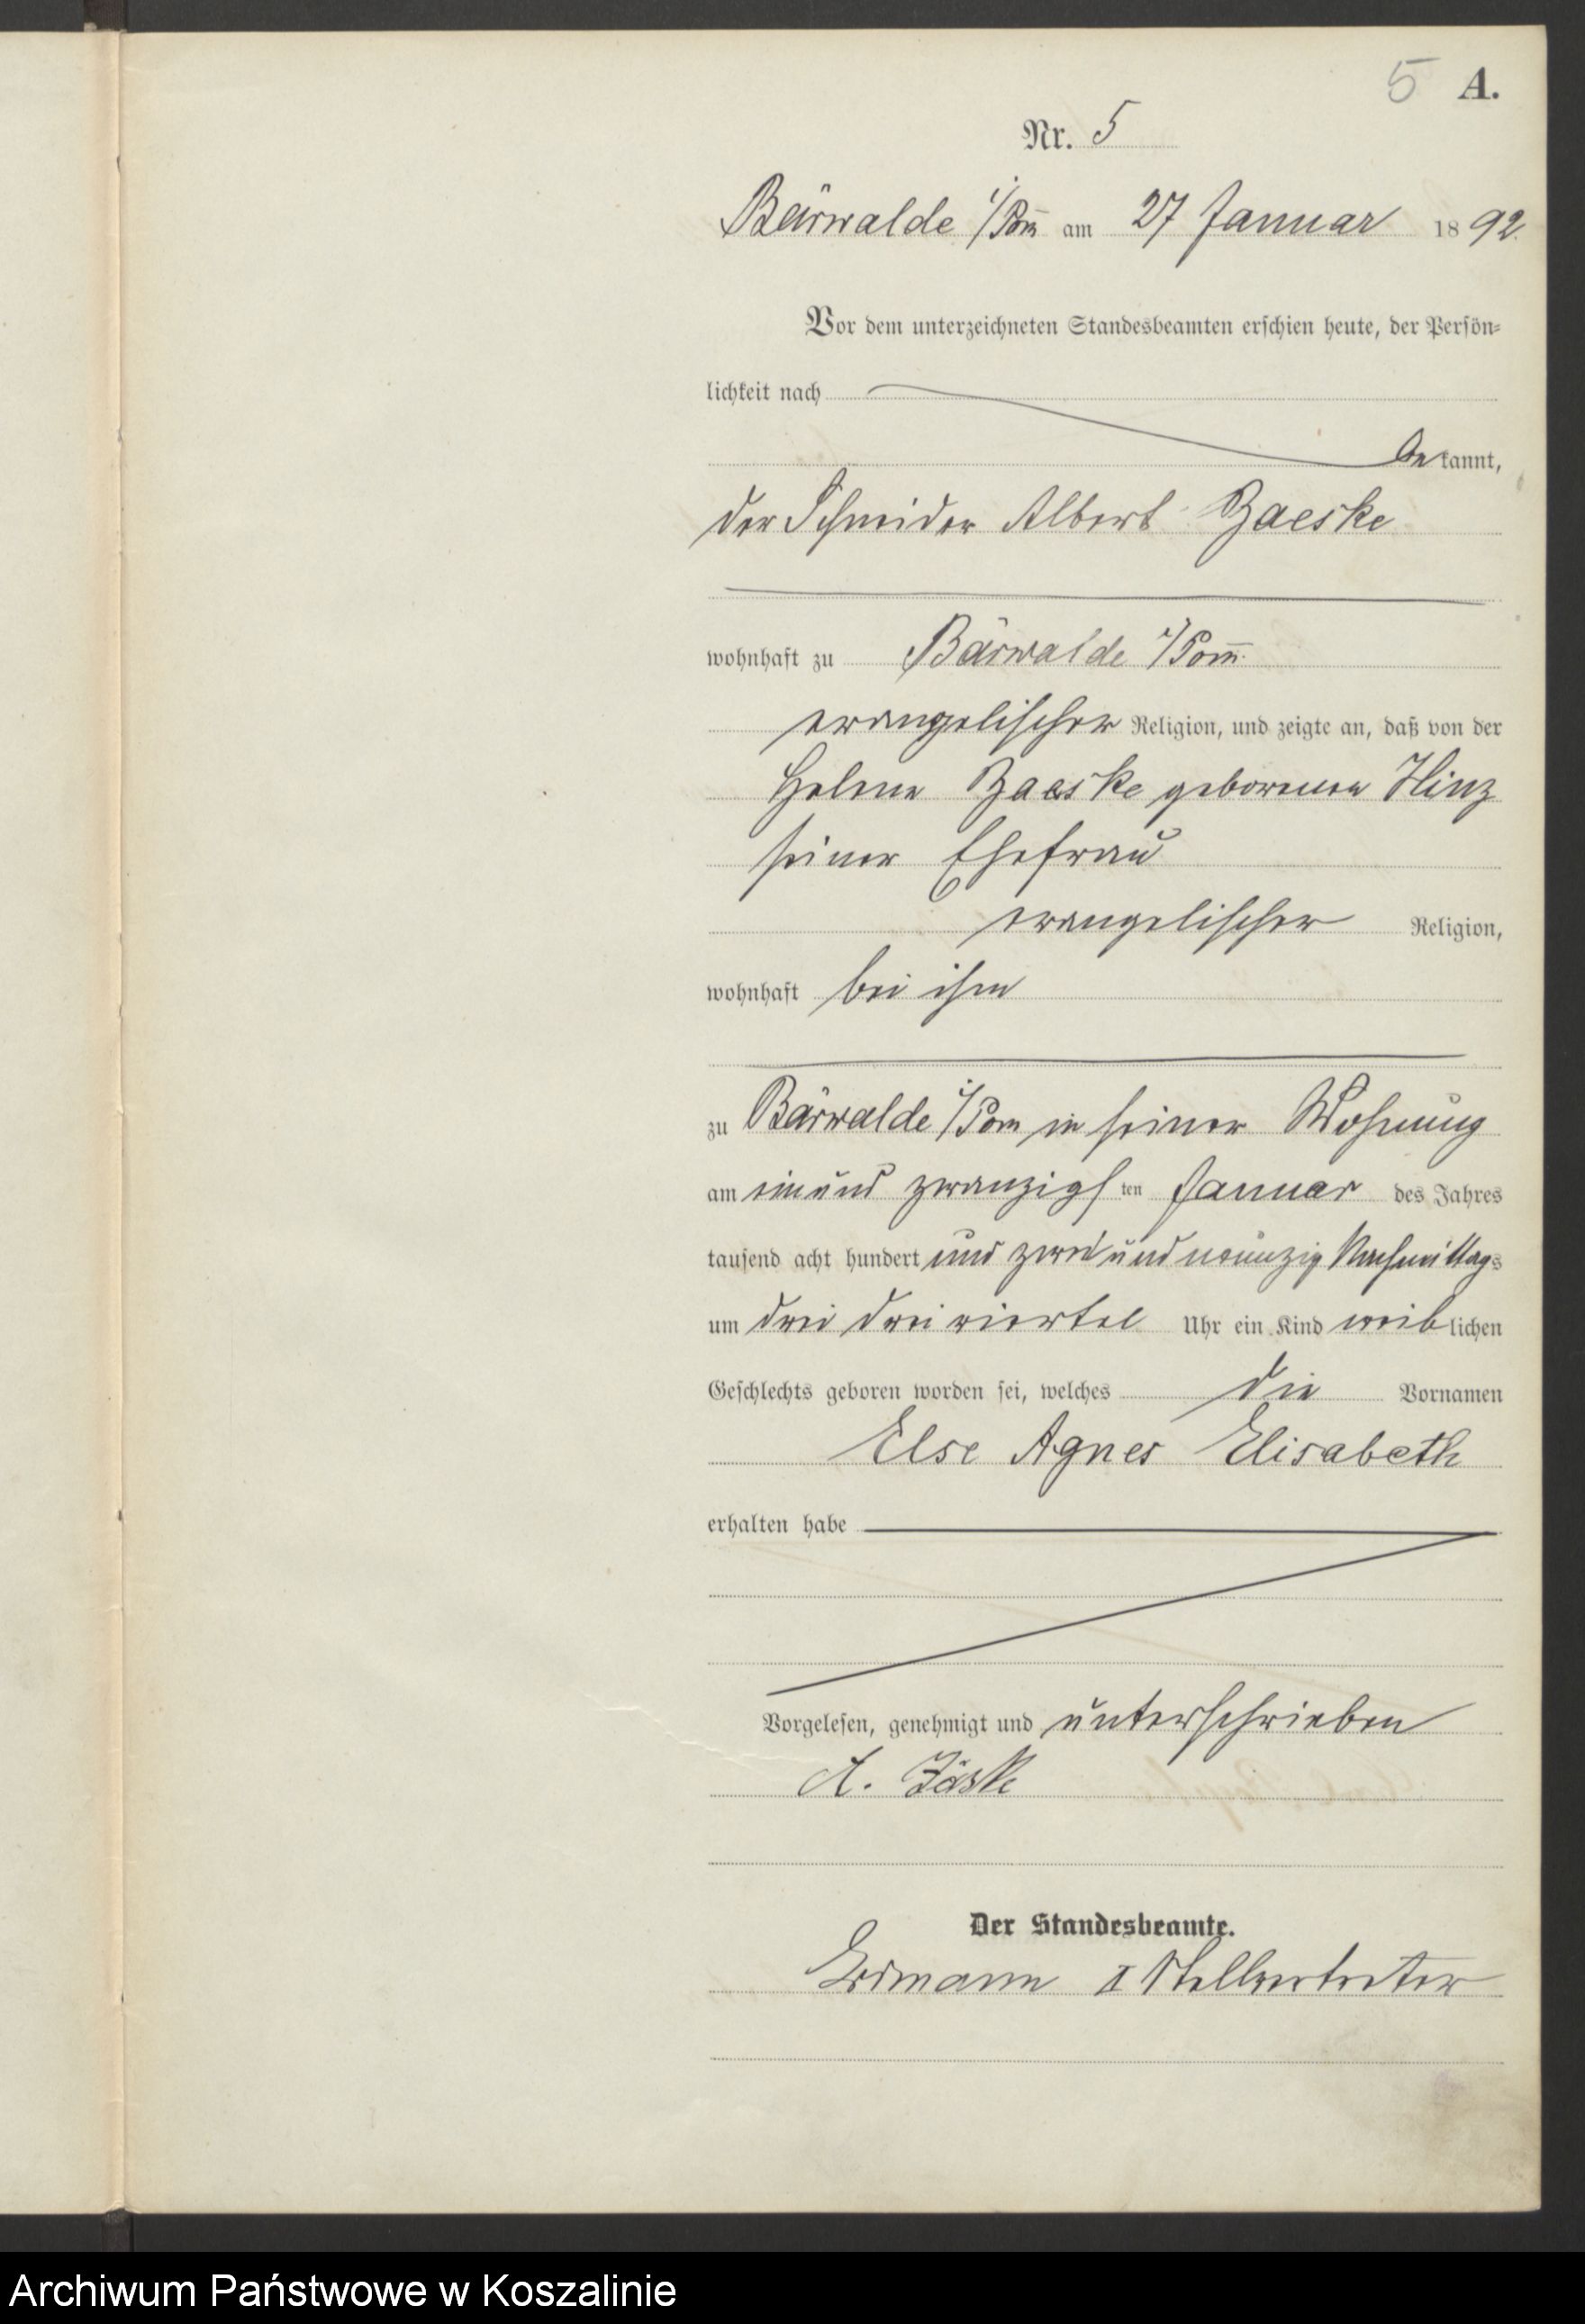 5 A.
Nr. 5
Bärwalde i/Pom am 27 Januar 1892.
Vor dem unterzeichneten Standesbeamten erschien heute, der Persön-
lichkeit nach
bekannt,
der Schneider Albert Zaeske
wohnhaft zu Bärwalde i/Pom.
evangelischer Religion, und zeigte an, daß von der
Helene Zaeske geborenen Hinz
seiner Ehefrau
evangelischer Religion,
wohnhaft bei ihm
zu Bärwalde i/Pom in seiner Wohnung
am einund zwanzigsten Januar des Jahres
tausend acht hundert und zwei und neunzig Nachmittags
um drei dreiviertel Uhr ein Kind weiblichen
Geschlechts geboren worden sei, welches die Vornamen
Else Agnes Elisabeth
erhalten habe
Vorgelesen, genehmigt und unterschrieben
A. Zäske
Der Standesbeamte.
Erdmann I Stellvertreter
Archiwum Państwowe w Koszalinie